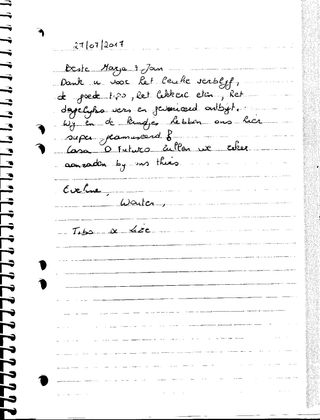 27/07/2017
Beste Marja & Jan
Dank u voor het leuke verblijf,
de goede tips, het lekkere eten, het
dagelijks vers en gevarieerd ontbijt.
Wij en de kindjes hebben ons hier
super geamuseerd!
Casa O Futuro zullen we zeker
aanraden bij ons thuis
Eveline,
Wouter,
Tibo &